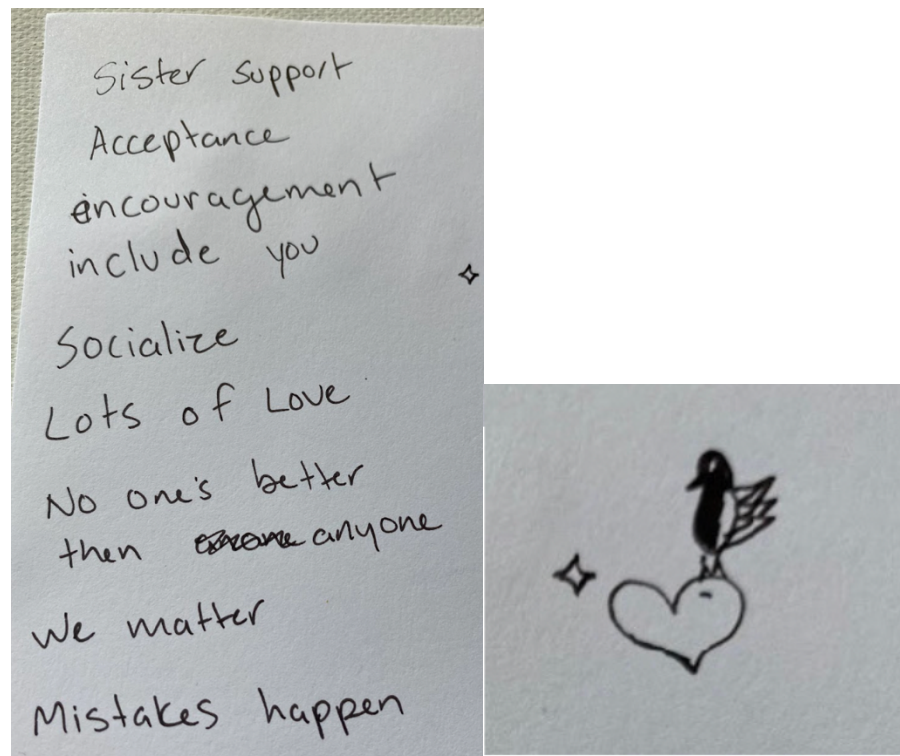 Sister support
Acceptance
encouragement
include you
Socialize
Lots of Love
No one's better
then anyone
We matter
Mistakes happen